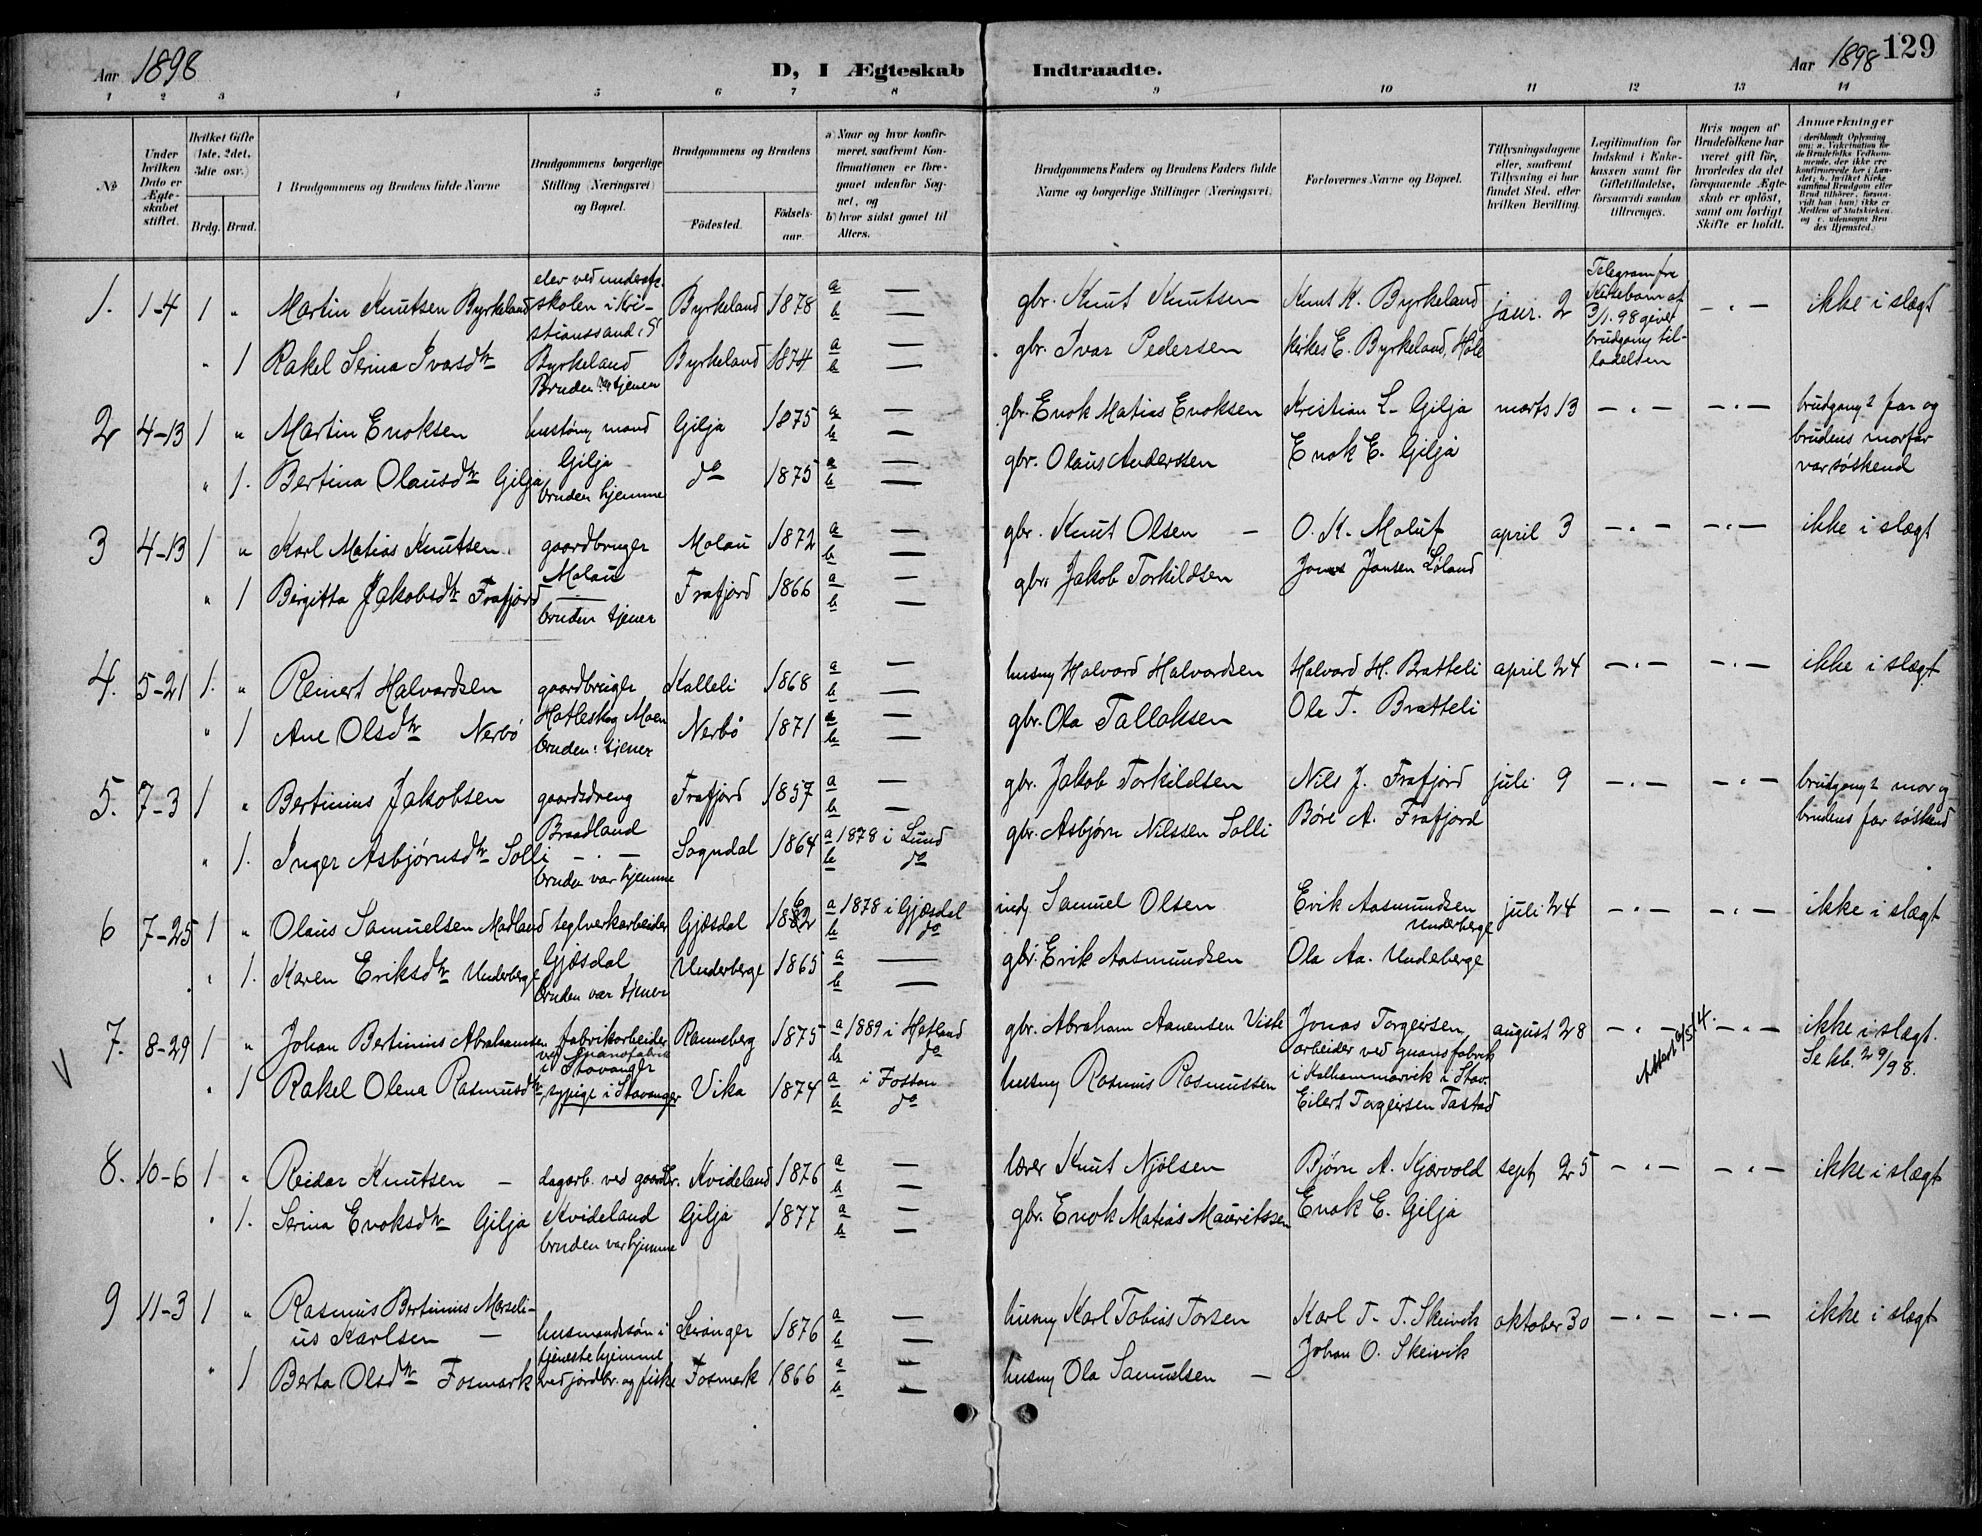 Aar 1898
D, I Ægteskab Indtraadte.
Aar 1898 129
1 2 3 4 5 6 7 8 9 10 11 12 13 14
No
Under hvilken Dato er Ægteskabet stiftet.
Hvilket Gifte (1ste, 2det, 3die osv.)
Brdg. Brud.
Brudgommens og Brudens fulde Navne
Brudgommens borgerlige Stilling (Næringsvei) og Bopæl.
Brudgommens og Brudens
Födested.
Födselsaar.
a) Naar og hvor konfirmeret, saafremt Konfirmationen er foregaaet udenfor Sognet, og
b) hvor sidst gaaet til Alters.
Brudgommens Faders og Brudens Faders fulde Navne og borgerlige Stillinger (Næringsvei).
Forlovernes Navne og Bopæl.
Tillysningsdagene eller, saafremt Tillysning ei har fundet Sted, efter hvilken Bevilling.
Legitimation for Indskud i Enkekassen samt for Giftetilladelse, forsaavidt saadan tiltrænges.
Hvis nogen af Brudefolkene har været gift för, hvorledes da det foregaaende Ægteskab er oplöst, samt om lovligt Skifte er holdt.
Anmærkninger
1. 1-4 1 " Martin Knutsen Byrkeland
elev ved underof.
skolen i Kri-
stianssand, S
Byrkeland 1878 a — b —
gbr. Knut Knutsen
Knut K. Byrkeland
januar. 2
Telegram fra
3/1.98 giver
brudgom til-
ladelsen
— . —
ikke i slægt
" 1 Rakel Serina Ivarsdtr
Byrkeland
Bruden tjener
Byrkeland 1874 a — b —
gbr. Ivar Pedersen
Kirkes E. Byrkeland, Höle
2 4-13 1 " Martin Enoksen
Gilja
Gilja 1875 a — b —
gbr. Enok Matias Enoksen
Kristian L. Gilja
marts 13 — . — — . —
brudgoms far og
brudens morfar
var söskend
" 1. Bertina Olausdtr Gilja
bruden hjemme
do 1875 a — b —
gbr. Olaus Anderssen
Enok E. Gilja
3 4-13 1 " Karl Matias Knutsen
gaardbruger
Molau
Molau 1872 a — b —
gbr. Knut Olsen —
O. K. Molaug
april 3 — . — — . —
ikke i slægt
" 1 Birgitta Jakobsdtr Frafjord
bruden tjener
Frafjord 1866 a — b —
gbr. Jakob Torkildsen
Jonas Jansen Löland
4. 5-21 1. " Reinert Halvardsen
gaardbruger
Hatleskog Moen
Kalleli 1868 a — b —
husmd Halvard Halvardsen
Halvard H. Bratteli
april 24 — . — — . —
ikke i slægt
" 1 Ane Olsdtr Nerbö
bruden: tjener
Nerbö 1871 a — b —
gbr. Ola Tallaksen
Ole T. Bratteli
5. 7-3 1 " Bertinius Jakobsen
gaardsdreng
Braadland
Frafjord 1857 a — b —
gbr. Jakob Torkildsen
Nils J. Frafjord
juli 9 — . — — . —
brudgoms mor og
brudens far söskend
" 1. Inger Asbjörnsdtr Solli
— . —
bruden var hjemme
Sogndal 1864 a 1878 i Lund b do
gbr. Asbjörn Nilssen Solli
Böre A. Frafjord
6 7-25 1 " Olaus Samuelsen Madland
teglverkarbeider
Gjæsdal
Gjæsdal 1862 a 1878 i Gjæsdal b do
indg Samuel Olsen
Erik Aasmundsen
Underberge
juli 24 — . — — . —
ikke i slægt
" 1. Karen Eriksdtr Underberge
bruden var tjener
Underberge 1865 a — b —
gbr. Erik Aasmundsen
Ola Aa. Undeberge
V 7. 8-29 1 " Johan Bertinius Abrahamsen
fabrikarbeider
ved guanofabrik
i Stavanger
Ranneberg 1875 a 1889 i Hetland b do
gbr. Abraham Aanensen Viste
Jonas Torgersen
arbeider ved guanofabrik
i Kalhammarvik i Stav.
august 28 — . — — . —
Attest 9/5 14.
ikke i slægt.
Se kb. 29/98.
" 1 Rakel Olena Rasmusdtr
sypige i Stavanger
Vika 1874 a i Fossan b do
husmd Rasmus Rasmussen
Eilert Torgersen Tastad
8. 10-6 1 " Reidar Knutsen —
dagarb. ved gaardbr.
Kvideland
Kvideland 1876 a — b —
lærer Knut Njölsen
Björn A. Kjærvold
sept. 25 — . — — . —
ikke i slægt
" 1. Serina Enoksdtr Gilja
bruden var hjemme
Gilja 1877 a — b —
gbr. Enok Matias Mauritssen
Enok E. Gilja
9 11-3 1 " Rasmus Bertinius Marseli-
us Karlsen —
husmandssön i
tjeneste hjemme
ved jordbr. og fiske
Leranger 1876 a — b —
husmd Karl Tobias Torsen
Karl T. T. Skeivik
oktober 30 — . — — . —
ikke i slægt
" 1 Berta Olsdtr Fosmark
Fosmark 1866 a — b —
husmd Ola Samuelsen —
Johan O. Skeivik